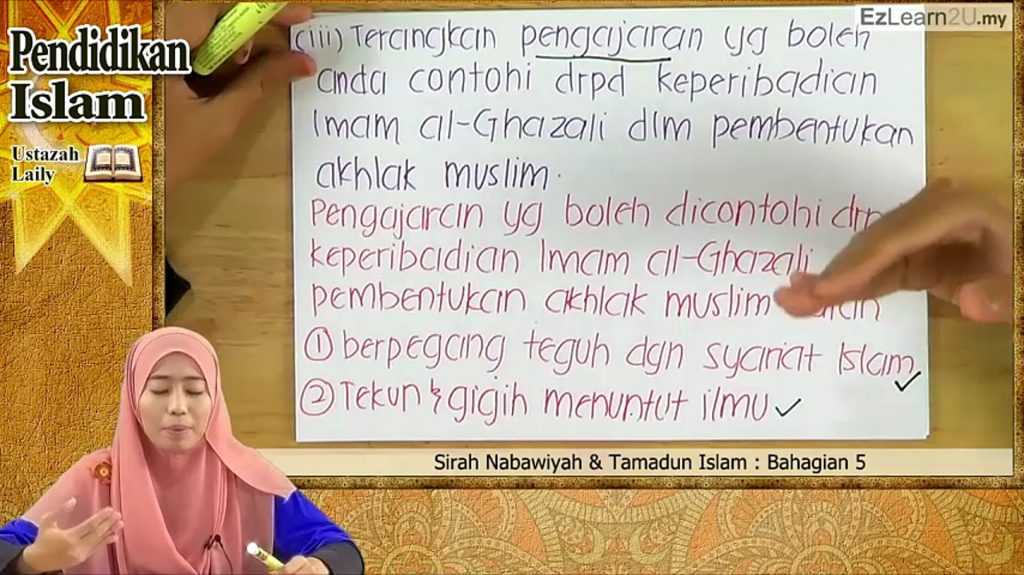 EzLearn2U.my
Pendidikan
Islam
Ustazah
Laily
(iii) Terangkan pengajaran yg boleh
anda contohi drpd keperibadian
Imam al-Ghazali dlm pembentukan
akhlak muslim.
Pengajaran yg boleh dicontohi
keperibadian Imam al-Ghazali
pembentukan akhlak muslim
① berpegang teguh dgn syariat Islam
② Tekun & gigih menuntut ilmu
Sirah Nabawiyah & Tamadun Islam : Bahagian 5